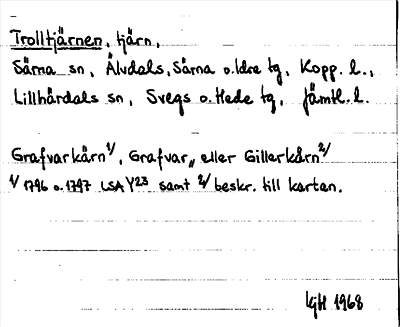 Trolltjärnen, tjärn,
Särna sn, Älvdals, Särna o. Idre tg, Kopp. l.,
Lillhärdals sn, Svegs o. Hede tg, Jämtl. l.
Grafvarkärn 1/, Grafvar„ eller Gillerkärn 2/
1/ 1796 o. 1797 LSA Y23 samt 2/ beskr. till kartan.
1968